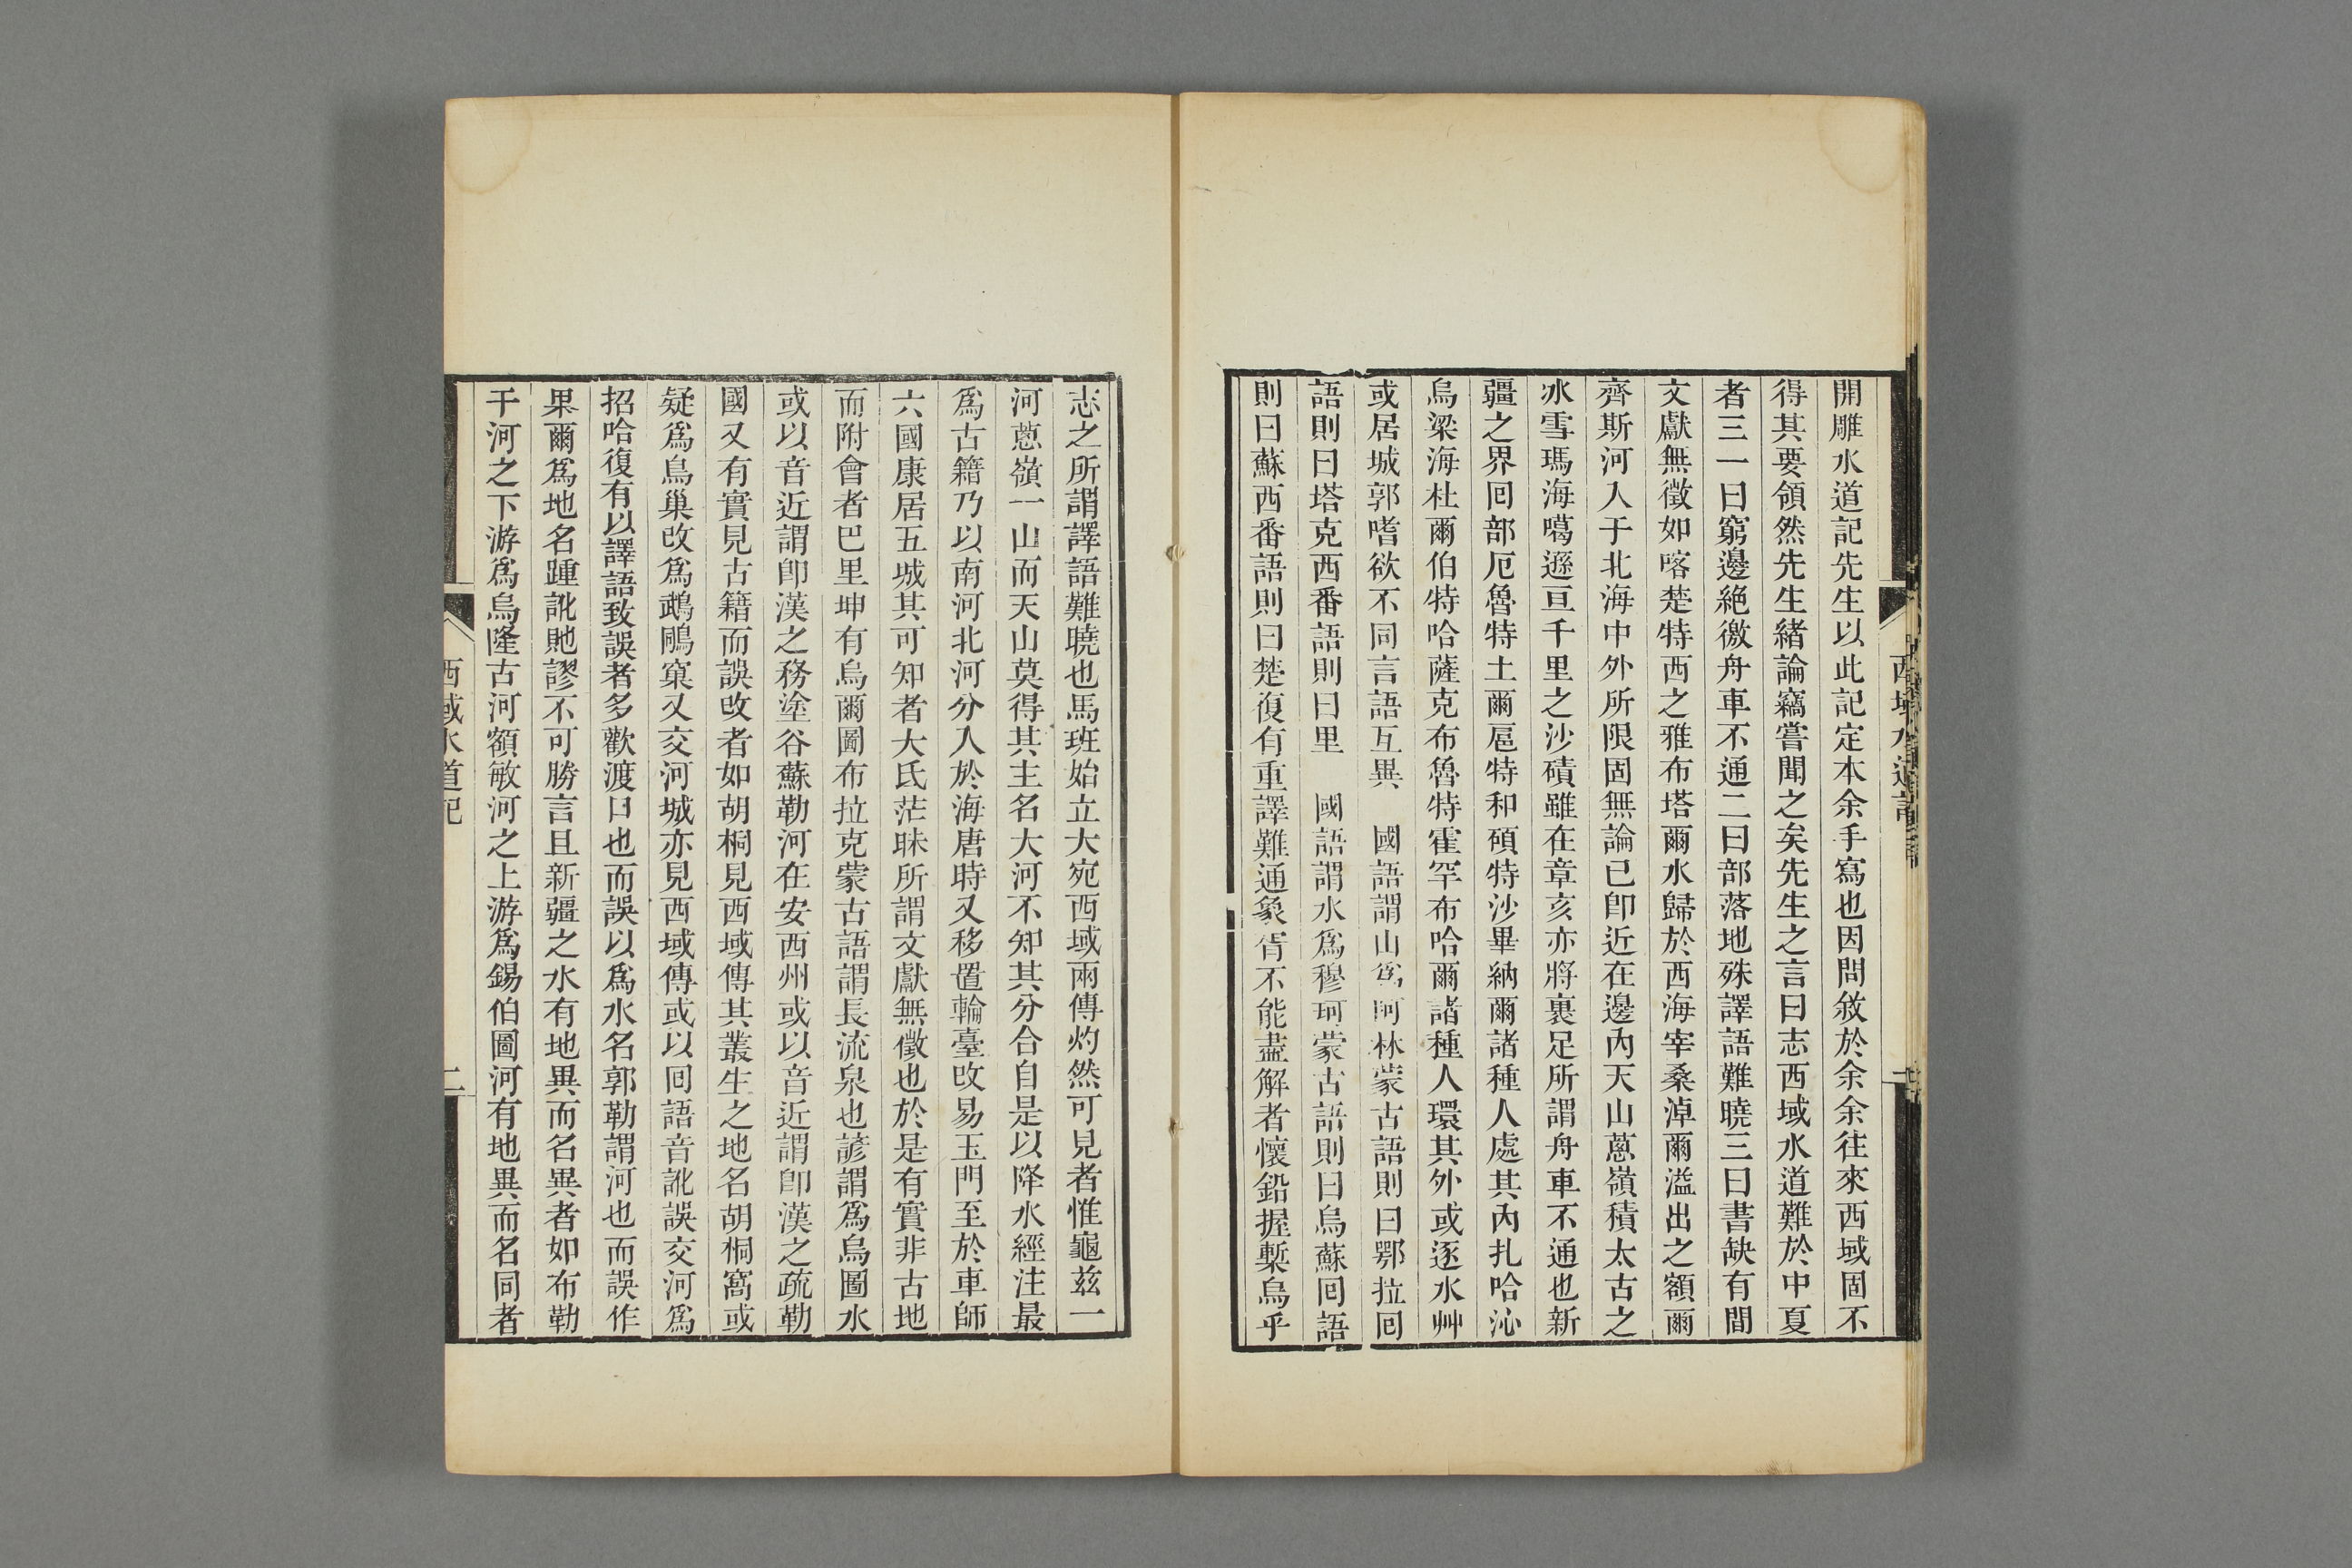 開雕水道記先生以此記定本余手寫也因問敘於余余往來西域固不
得其要領然先生緒論竊嘗聞之矣先生之言曰志西域水道難於中夏
者三一曰窮邊絶徼舟車不通二曰部落地殊譯語難曉三曰書缺有間
文獻無徵如喀楚特西之雅布塔爾水歸於西海宰桑淖爾溢出之額爾
齊斯河入于北海中外所限固無論已卽近在邊內天山蔥嶺積太古之
冰雪瑪海噶遜亘千里之沙磧雖在章亥亦將裹足所謂舟車不通也新
疆之界囘部厄魯特土爾扈特和碩特沙畢納爾諸種人處其內扎哈沁
烏梁海杜爾伯特哈薩克布魯特霍罕布哈爾諸種人環其外或逐水艸
或居城郭嗜欲不同言語互異 國語謂山爲阿林蒙古語則曰鄂拉囘
語則曰塔克西番語則曰里 國語謂水爲穆珂蒙古語則曰烏蘇囘語
則曰蘇西番語則曰楚復有重譯難通象胥不能盡解者懷鉛握槧烏乎
志之所謂譯語難曉也馬班始立大宛西域兩傳灼然可見者惟龜兹一
河蔥嶺一山而天山莫得其主名大河不知其分合自是以降水經注最
爲古籍乃以南河北河分入於海唐時又移置輪臺改易玉門至於車師
六國康居五城其可知者大氐茫昧所謂文獻無徵也於是有實非古地
而附會者巴里坤有烏爾圖布拉克蒙古語謂長流泉也諺謂爲烏圖水
或以音近謂卽漢之務塗谷蘇勒河在安西州或以音近謂卽漢之疏勒
國又有實見古籍而誤改者如胡桐見西域傳其叢生之地名胡桐窩或
疑爲鳥巢改爲鵡鵰窠又交河城亦見西域傳或以囘語音訛誤交河爲
招哈復有以譯語致誤者多歡渡口也而誤以爲水名郭勒謂河也而誤作
果爾爲地名踵訛貤謬不可勝言且新疆之水有地異而名異者如布勒
干河之下游爲烏隆古河額敏河之上游爲錫伯圖河有地異而名同者
西域水道記
二